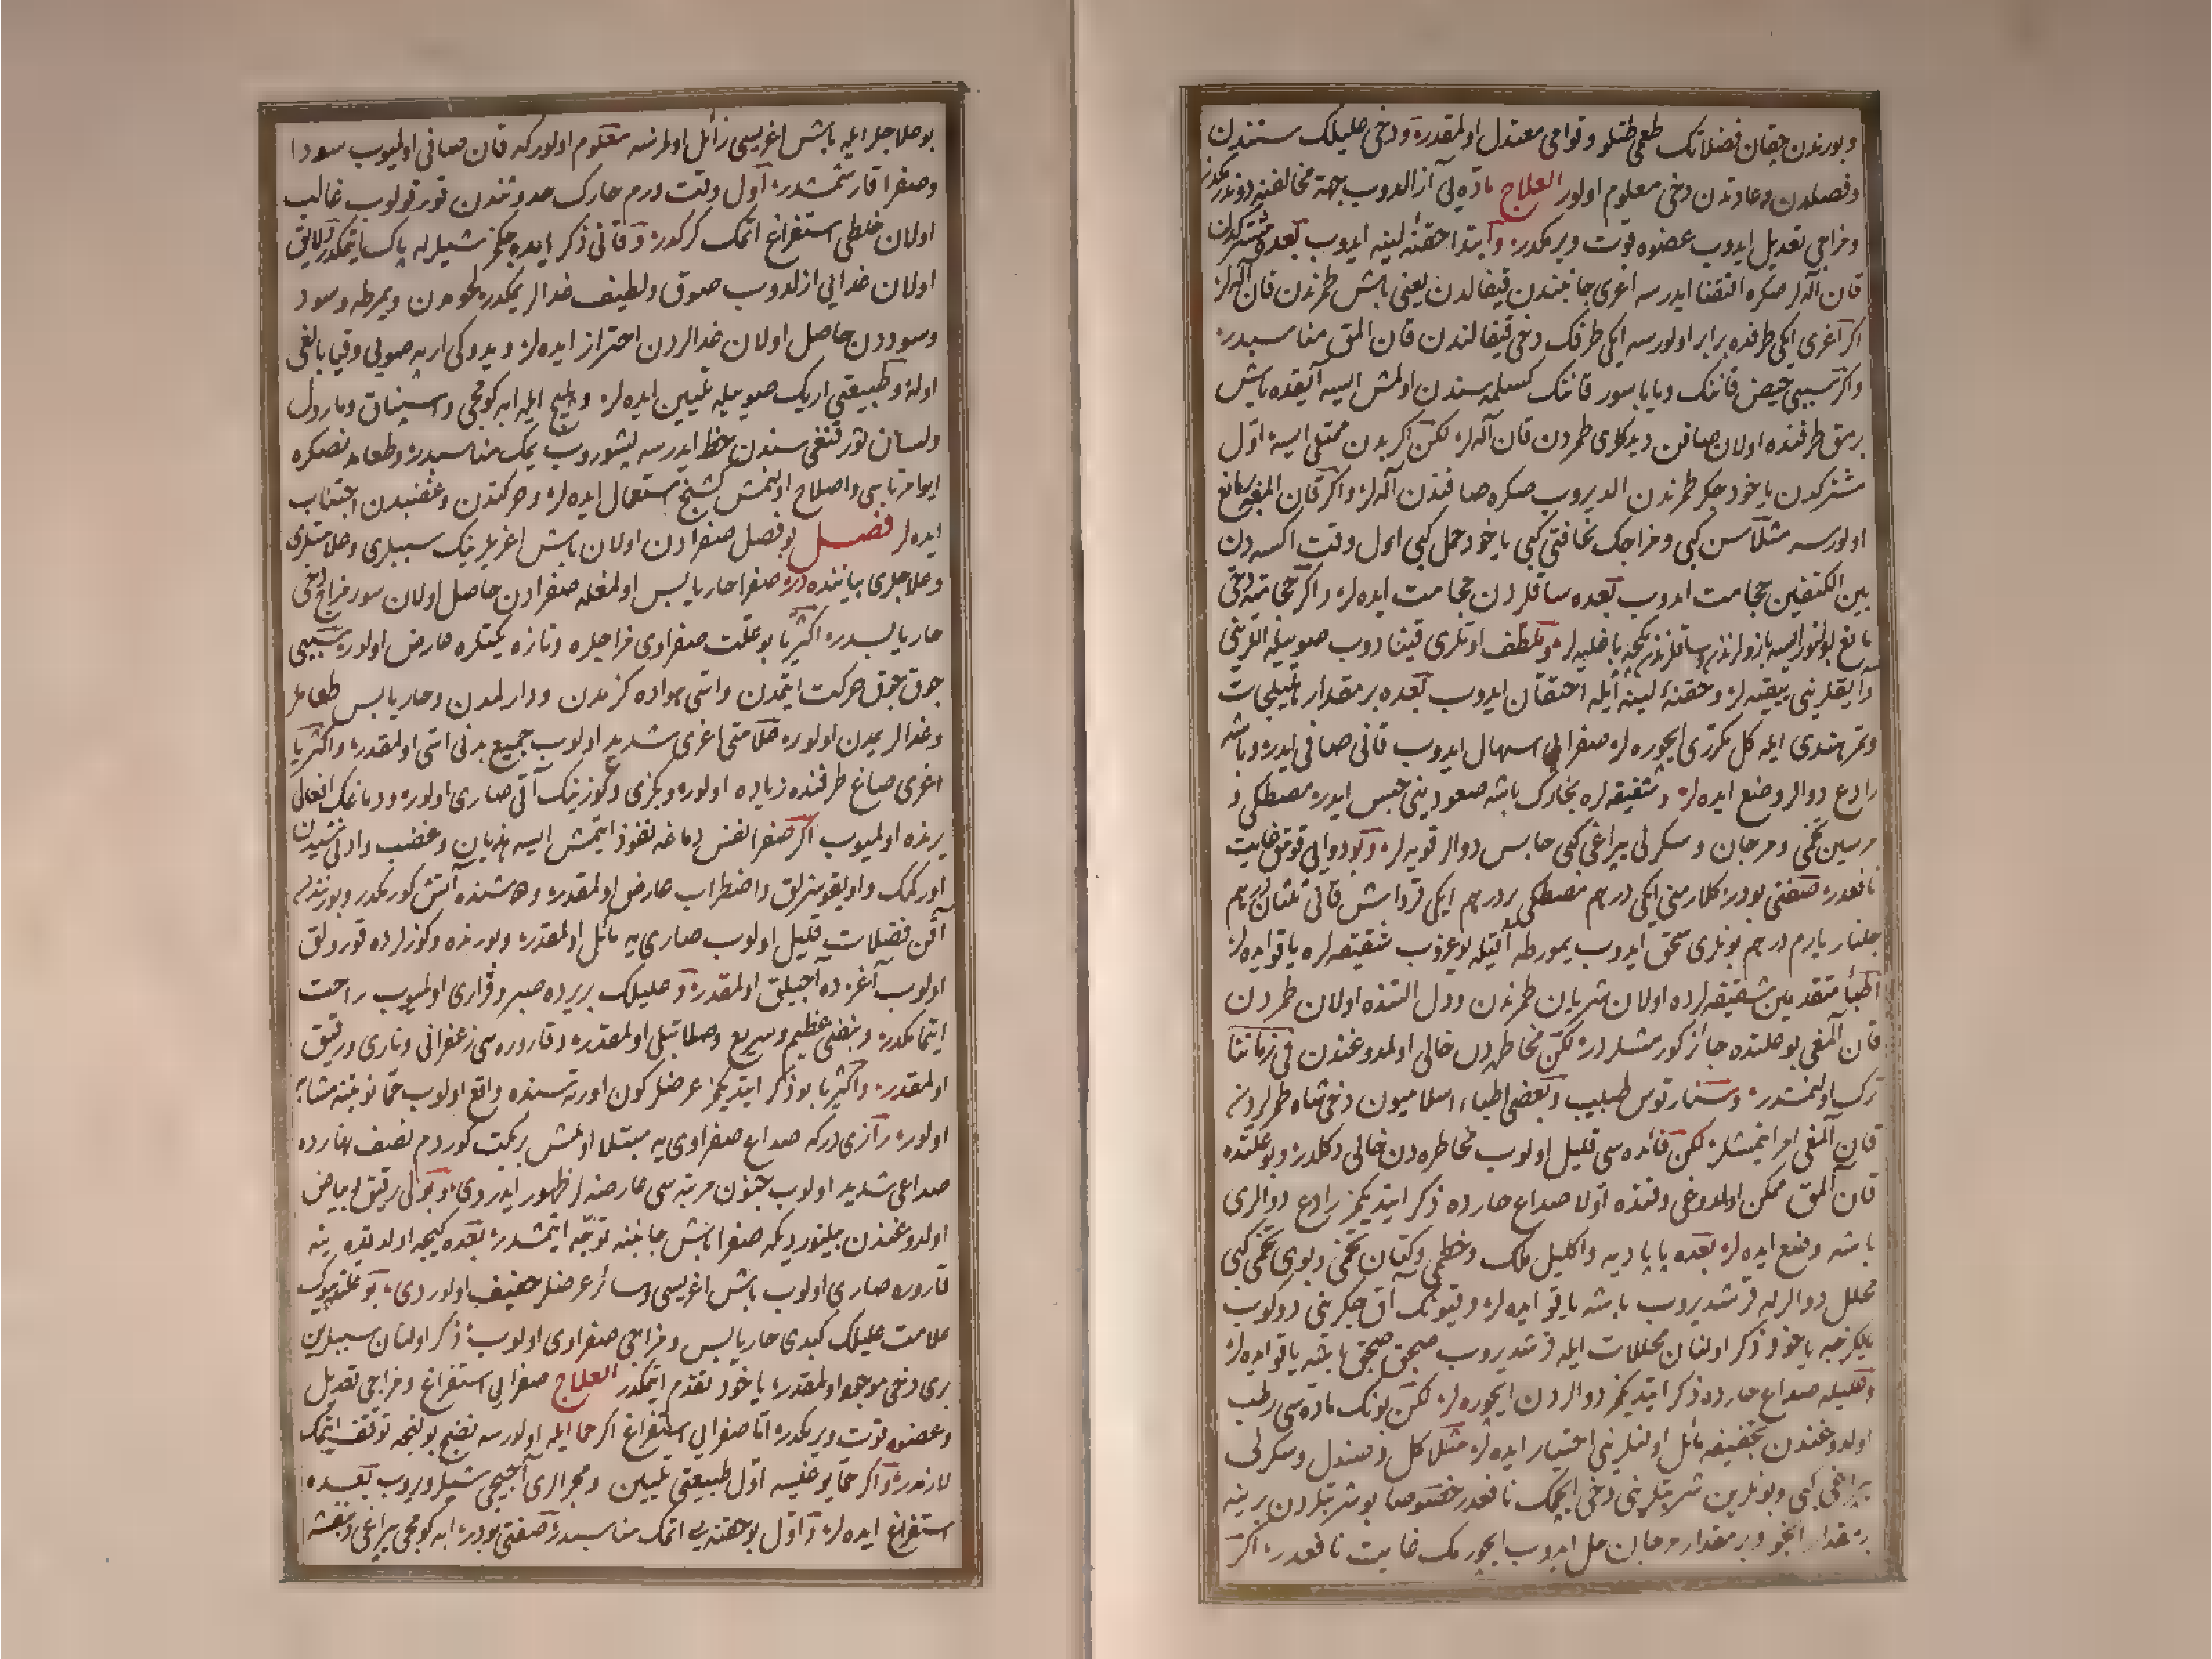 وبورندن چقان فضلاتك طعمى طتلو وقوامى معتدل اولمقدر ودخى عليلك سنندن
وفصلدن وعادتدن دخى معلوم اولور العلاج مادّه يى آزالدوب جهة مخالفنه دوندرمكدر
ومزاجى تعديل ايدوب عضوه قوت ويرمكدر وابتدا حقنۀ لينه ايدوب بعده مشتركدن
قان آلهلر صكره اقتضا ايدرسه اغرى جانبندن قيفالدن يعنى باش طمرندن قان آلهلر
اكر آغرى ايكى طرفده برابر اولورسه ايكى طرفك دخى قيفالندن قان المق مناسبدر
واكر سببى حيض قاننك ويا باسور قاننك كسلمه سندن اولمش ايسه آيقده باش
برمق طرفنده اولان صافن ديدكلرى طمردن قان آلهلر لكن اكر بدن ممتلى ايسه اوّل
مشتركدن ياخود جكر طمرندن الديروب صكره صافندن آلهلر واكر قان المغه مانع
اولورسه مثلا سن كبى ومزاجك نحافتى كبى ياخود حمل كبى اول وقت اكسه دن
بين الكتفين حجامت ايدوب بعده ساقلردن حجامت ايدهلر واكر حجامته دخى
مانع بولنور ايسه بازولرندن وساقلرندن محكم باغليهلر وملطف اوتلرى قينادوب صوييله اللرينى
وآيقلرينى ييقيهلر وحقنۀ لينه ايله احتقان ايدوب بعده بر مقدار هليلجات
وتمر هندى ايله كل مكررى ايچورهلر صفرايى اسهال ايدوب قانى صافى ايدر وباشه
رادع دوالر وضع ايدهلر وشقيقهلره بخارك باشه صعودينى حبس ايدر مصطكى و
مرسين تخمى ومرجان وسكرلى يپراغى كبى حابس دوالر قويهلر وبو دوايى قومق غايت
نافعدر صفتى بودر كل ارمنى ايكى درهم مصطكى بر درهم ايكى قرداش قانى ثلثان درهم
جلنار يارم درهم بونلرى سحق ايدوب يمورطه آقيله يوغروب شقيقهلره ياقو ايدهلر
اطباء متقدمين شقيقهلرده اولان شريان طمرندن ودل التنده اولان طمردن
قان آلمغى بو علتده جائز كورمشلردر لكن مخاطره دن خالى اولمدوغندن فى زماننا
ترك اولنمشدر وسنارتوس طبيب وبعضى اطباء اسلاميون دخى شاه طمرلردن
قان آلمغى امر ايتمشلر لكن فائده سى قليل اولوب مخاطره دن خالى دكلدر وبو علتده
قان آلمق ممكن اولدوغى وقتده اوّلا صداع حارده ذكر ايتديكمز رادع دوالرى
باشه وضع ايدهلر بعده پاپاديه واكليل ملك وخطمى وكتان تخمى وبوى تخمى كبى
محلل دوالرله قرشديروب باشه ياقو ايدهلر وقيونك آق جكرينى دوكوب
يالكزجه ياخود ذكر اولنان محللات ايله قرشديروب صجق صجق باشه ياقو ايدهلر
وعليله صداع حارده ذكر ايتديكمز دوالردن ايچورهلر لكن بونك مادّه سى رطب
اولدوغندن تجفيفه مائل اولنلرينى اختيار ايدهلر مثلا كل وصندل وسكرلى
يپراغى كبى وبونلرين شربتلرينى دخى ايچمك نافعدر خصوصا بو شربتلردن برينه
بر مقدار انجو وبر مقدار مرجان حل ايدوب ايچورمك غايت نافعدر اكر
بو علاجلر ايله باش اغريسى زائل اولمزسه معلوم اولور كه قان صافى اولميوب سودا
وصفرا قارشمشدر اول وقت ورم حارك حدوثندن قورقولوب غالب
اولان خلطى استفراغ اتمك كركدر وقانى ذكر ايده جكمز شيلرله پاك ايتمكدر ولايق
اولان غدايى ازلدوب صوق ولطيف غدالر يمكدر لحومدن ويمرطه وسود
وسوددن حاصل اولان غدالردن احتراز ايدهلر ويدوكى اربه صويى وقيا بالغى
اوله وطبيعتى اريك صوييله تليين ايدهلر وبليج ايله ابه كومجى واسپناق ومارول
ولسان ثور قنغى سندن حظ ايدرسه پشوروب يمك مناسبدر وطعامدنصكره
ايوا مرباسى واصلاح اولنمش كشنيج استعمال ايدهلر وحركتدن وغضبدن اجتناب
ايدهلر فصل بو فصل صفرادن اولان باش اغريلرينك سببلرى وعلامتلرى
وعلاجلرى بياننده در صفرا حار يابس اولمغله صفرادن حاصل اولان سوء مزاج دخى
حار يابسدر اكثريا بو علت صفراوى مزاجلره وتازه يكتلره عارض اولور سببى
چوق چوق حركت ايتمدن واسى هواده كزمدن ودارلمدن وحار يابس طعاملر
وغدالر يمدن اولور علامتى اغرى شديد اولوب جميع بدنى اسى اولمقدر واكثريا
اغرى صاغ طرفنده زياده اولور وبكزى وكوزينك آقى صارى اولور ودماغك افعالى
يرنده اولميوب اكر صفرا نفس دماغه نفوذ ايتمش ايسه هذيان وغضب وادنى شيدن
اوركمك واويقوسزلق واضطراب عارض اولمقدر ودوشنده آتش كورمكدر وبورندن
آقن فضلات قليل اولوب صارى يه مائل اولمقدر وبورنده وكوزلرده قورولق
اولوب آغزده آجيلق اولمقدر وعليلك بريرده صبر وقرارى اولميوب راحت
ايتمامكدر ونبضى عظيم وسريع وصلابتلى اولمقدر وقاروره سى زعفرانى ونارى ورقيق
اولمقدر واكثريا بو ذكر ايتديكمز عرضلر كون اورته سنده واقع اولوب حما نوبتنه مشابه
اولور رازى دركه صداع صفراوى يه مبتلا اولمش بر يكيت كوردم نصف نهارده
صداعى شديد اولوب جنون مرتبه سى عارضهلر ظهور ايدردى وبولى رقيق وبياض
اولدوغندن بيلنوردى كه صفرا باش جانبنه توجّه ايتمشدر بعده كيجه اولدقده ينه
قاروره صارى اولوب باش اغريسى وسائر عرضلر خفيف اولوردى بو علتده بيوك
علامت عليلك كبدى حار يابس ومزاجى صفراوى اولوب ذكر اولنان سببلرين
برى دخى موجود اولمقدر ياخود تقدم ايتمكدر العلاج صفرايى استفراغ ومزاجى تعديل
وعضوه قوت ويرمكدر امّا صفرايى استفراغ اكر حما ايله اولورسه نضج بولنجه توقف ايتمك
لازمدر واكر حما يوغيسه اوّل طبيعتى تليين ومجرالرى آچيجى شيلر ويروب بعده
استفراغ ايدهلر واوّل بو حقنه يى اتمك مناسبدر صفتى بودر ابه كومجى يپراغى وبنفشه